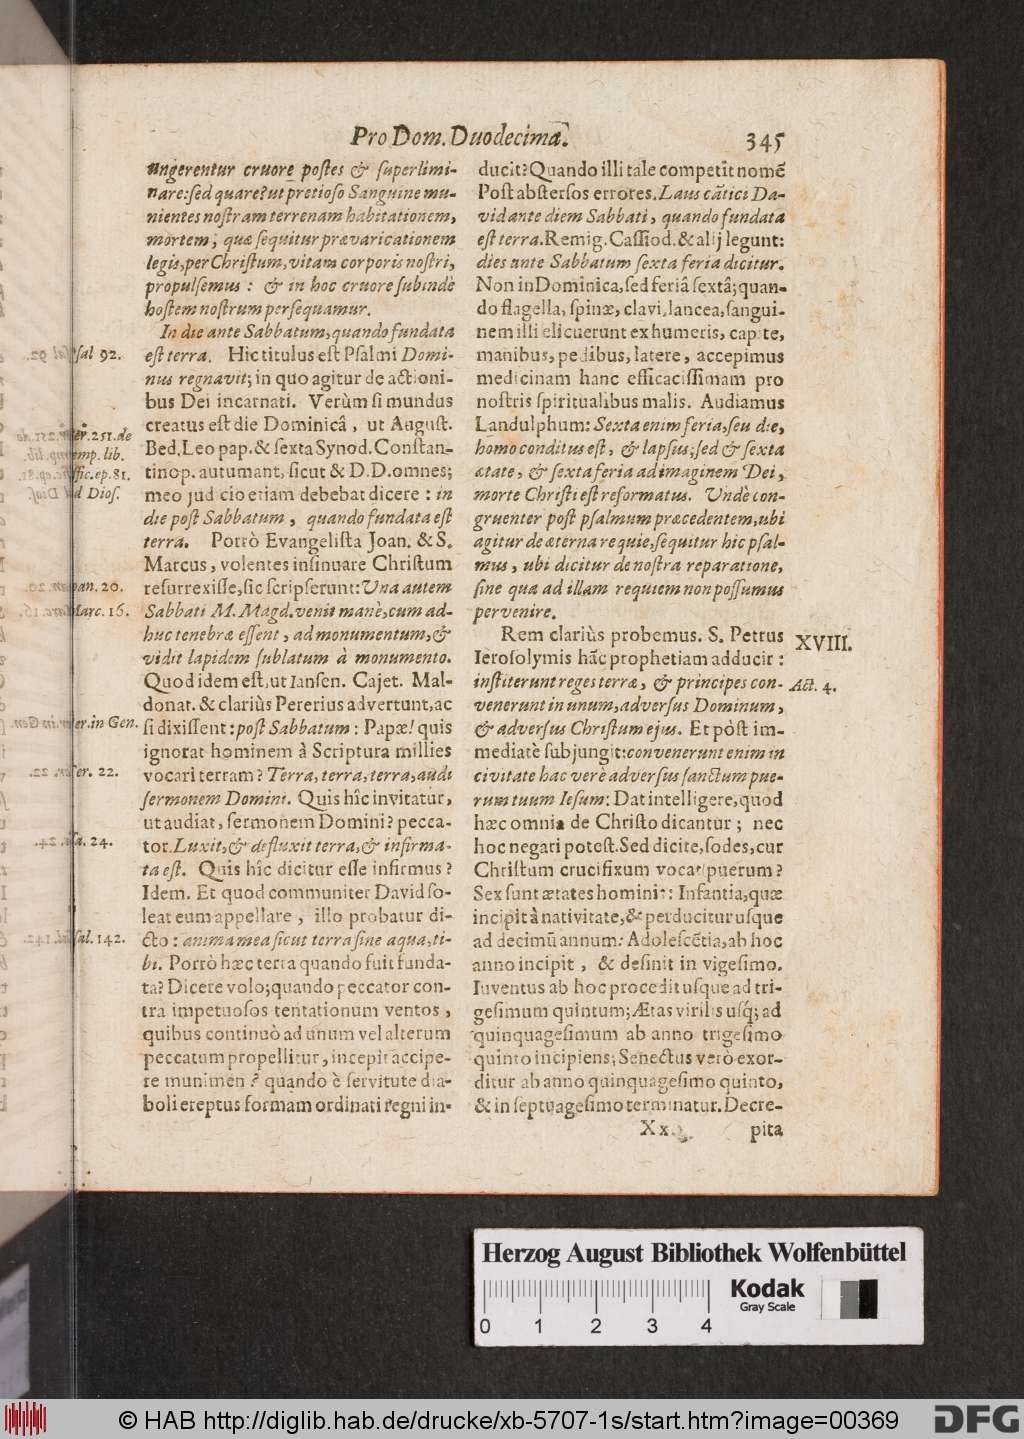 Pro Dom. Duodecima.
345
ungerentur cruore postes & superlimi-
nare: sed quare? ut pretioso Sanguine mu-
nientes nostram terrenam habitationem,
mortem, quæ sequitur prævaricationem
legis, per Christum, vitam corporis nostri,
propulsemus: & in hoc cruore subindè
hostem nostrum persequamur.
In die ante Sabbatum, quando fundata
est terra. Hic titulus est Psalmi Domi-
nus regnavit; in quo agitur de actioni-
bus Dei incarnati. Verùm si mundus
creatus est die Dominicâ, ut August.
Bed. Leo pap. & sexta Synod. Constan-
tinop. autumant, sicut & D.D. omnes;
meo judicio etiam debebat dicere: in
die post Sabbatum, quando fundata est
terra. Porrò Evangelista Joan. & S.
Marcus, volentes insinuare Christum
resurrexisse, sic scripserunt: Una autem
Sabbati M. Magd. venit manè, cum ad-
huc tenebræ essent, ad monumentum, &
vidit lapidem sublatum à monumento.
Quod idem est, ut Iansen. Cajet. Mal-
donat. & clariùs Pererius advertunt, ac
si dixissent: post Sabbatum: Papæ! quis
ignorat hominem à Scriptura millies
vocari terram? Terra, terra, terra, audi
sermonem Domini. Quis hîc invitatur,
ut audiat, sermonem Domini? pecca-
tor. Luxit, & defluxit terra, & infirma-
ta est. Quis hîc dicitur esse infirmus?
Idem. Et quod communiter David so-
leat eum appellare, illo probatur di-
cto: anima mea sicut terra sine aqua, ti-
bi. Porrò hæc terra quando fuit funda-
ta? Dicere volo; quando peccator con-
tra impetuosos tentationum ventos,
quibus continuò ad unum vel alterum
peccatum propellitur, incepit accipe-
re munimen? quando è servitute dia-
boli ereptus formam ordinati regni in-
sal 92.
er. 251. de
emp. lib.
ffic. ep. 81.
d Dios.
oan. 20.
Marc. 16.
er. in Gen.
er. 22.
sa. 24.
sal. 142.
ducit? Quando illi tale competit nomẽ
Post abstersos errores. Laus cãtici Da-
vid ante diem Sabbati, quando fundata
est terra. Remig. Cassiod. & alij legunt:
dies ante Sabbatum sexta feria dicitur.
Non in Dominica, sed feriâ sextâ; quan-
do flagella, spinæ, clavi, lancea, sangui-
nem illi elicuerunt ex humeris, capite,
manibus, pedibus, latere, accepimus
medicinam hanc efficacissimam pro
nostris spiritualibus malis. Audiamus
Landulphum: Sexta enim feria, seu die,
homo conditus est, & lapsus; sed & sexta
ætate, & sexta feria ad imaginem Dei,
morte Christi est reformatus. Undè con-
gruenter post psalmum præcedentem, ubi
agitur de æterna requie, sequitur hic psal-
mus, ubi dicitur de nostra reparatione,
sine qua ad illam requiem non possumus
pervenire.
Rem clariùs probemus. S. Petrus
Ierosolymis hãc prophetiam adducit:
institerunt reges terræ, & principes con-
venerunt in unum, adversus Dominum,
& adversus Christum ejus. Et pòst im-
mediatè subjungit: convenerunt enim in
civitate hac verè adversus sanctum pue-
rum tuum Iesum: Dat intelligere, quod
hæc omnia de Christo dicantur; nec
hoc negari potest. Sed dicite, sodes, cur
Christum crucifixum vocat puerum?
Sex sunt ætates hominis: Infantia, quæ
incipit à nativitate, & perducitur usque
ad decimũ annum: Adolescẽtia, ab hoc
anno incipit, & desinit in vigesimo.
Iuventus ab hoc procedit usque ad tri-
gesimum quintum; Ætas virilis usq́; ad
quinquagesimum ab anno trigesimo
quinto incipiens; Senectus verò exor-
ditur ab anno quinquagesimo quinto,
& in septuagesimo terminatur. Decre-
XVIII.
Act. 4.
Xx
pita
Herzog August Bibliothek Wolfenbüttel
0 1 2 3 4
Kodak
Gray Scale
© HAB http://diglib.hab.de/drucke/xb-5707-1s/start.htm?image=00369
DFG